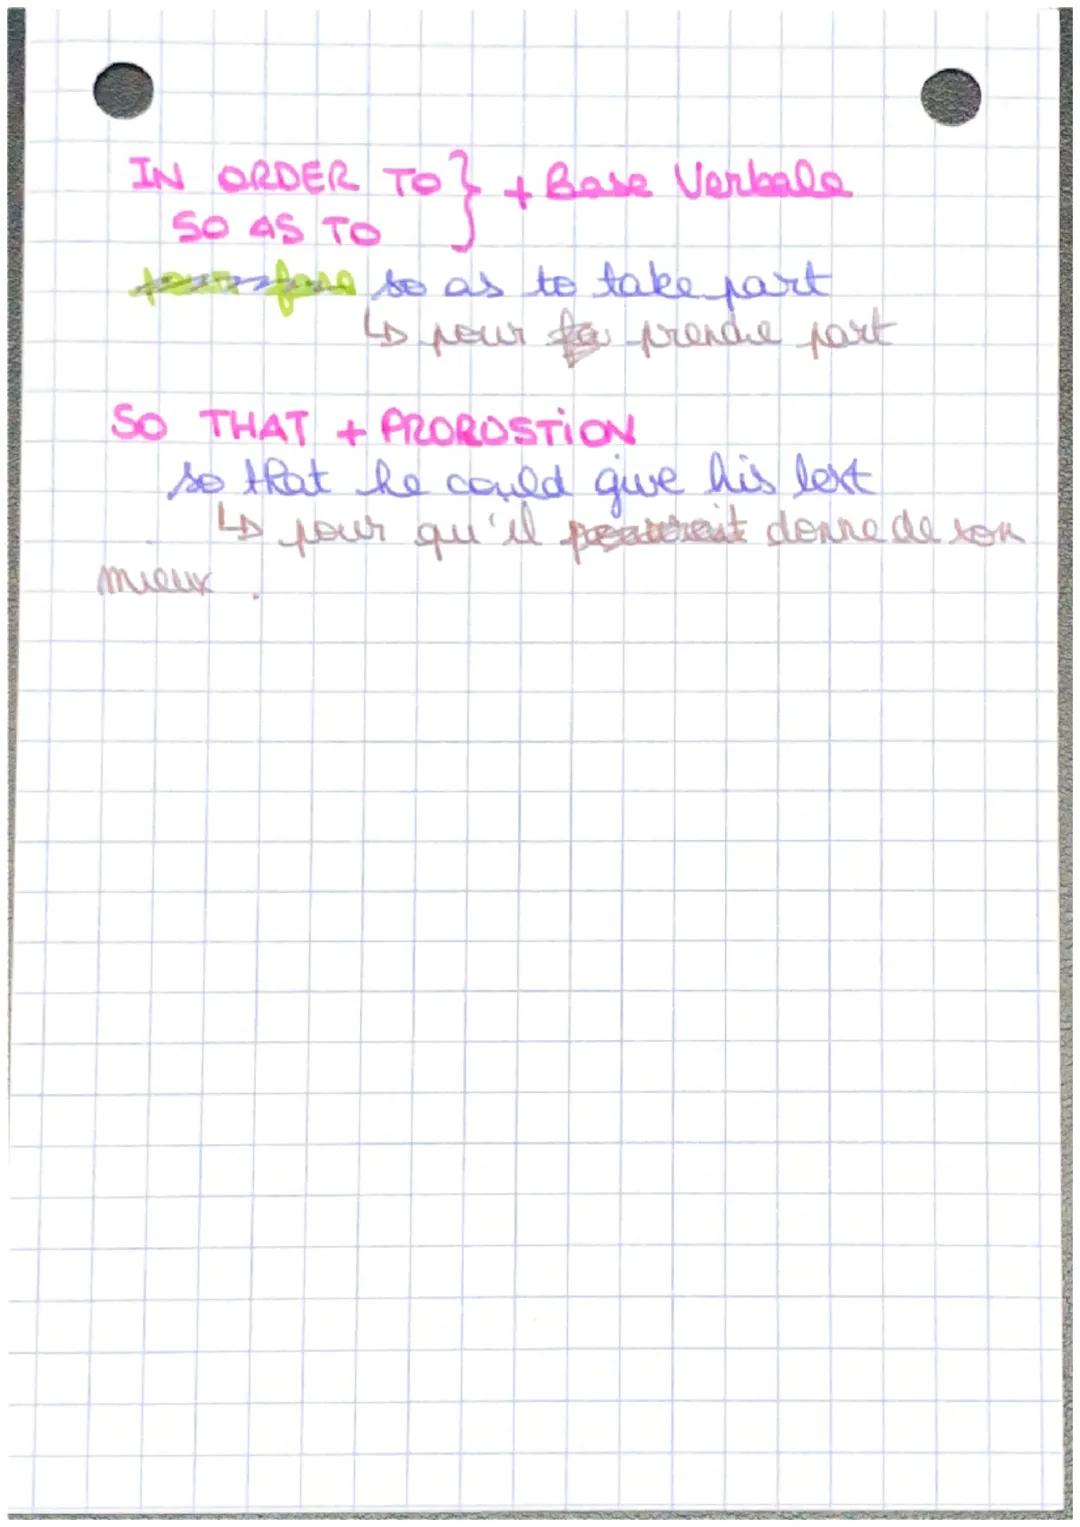 IN ORDER TO } + Base Verbale
SO AS TO
so as to take part
↳ pour prendre part
SO THAT + PROROSTION
so that he could give his best
↳ pour qu'il donne de son
mieux.